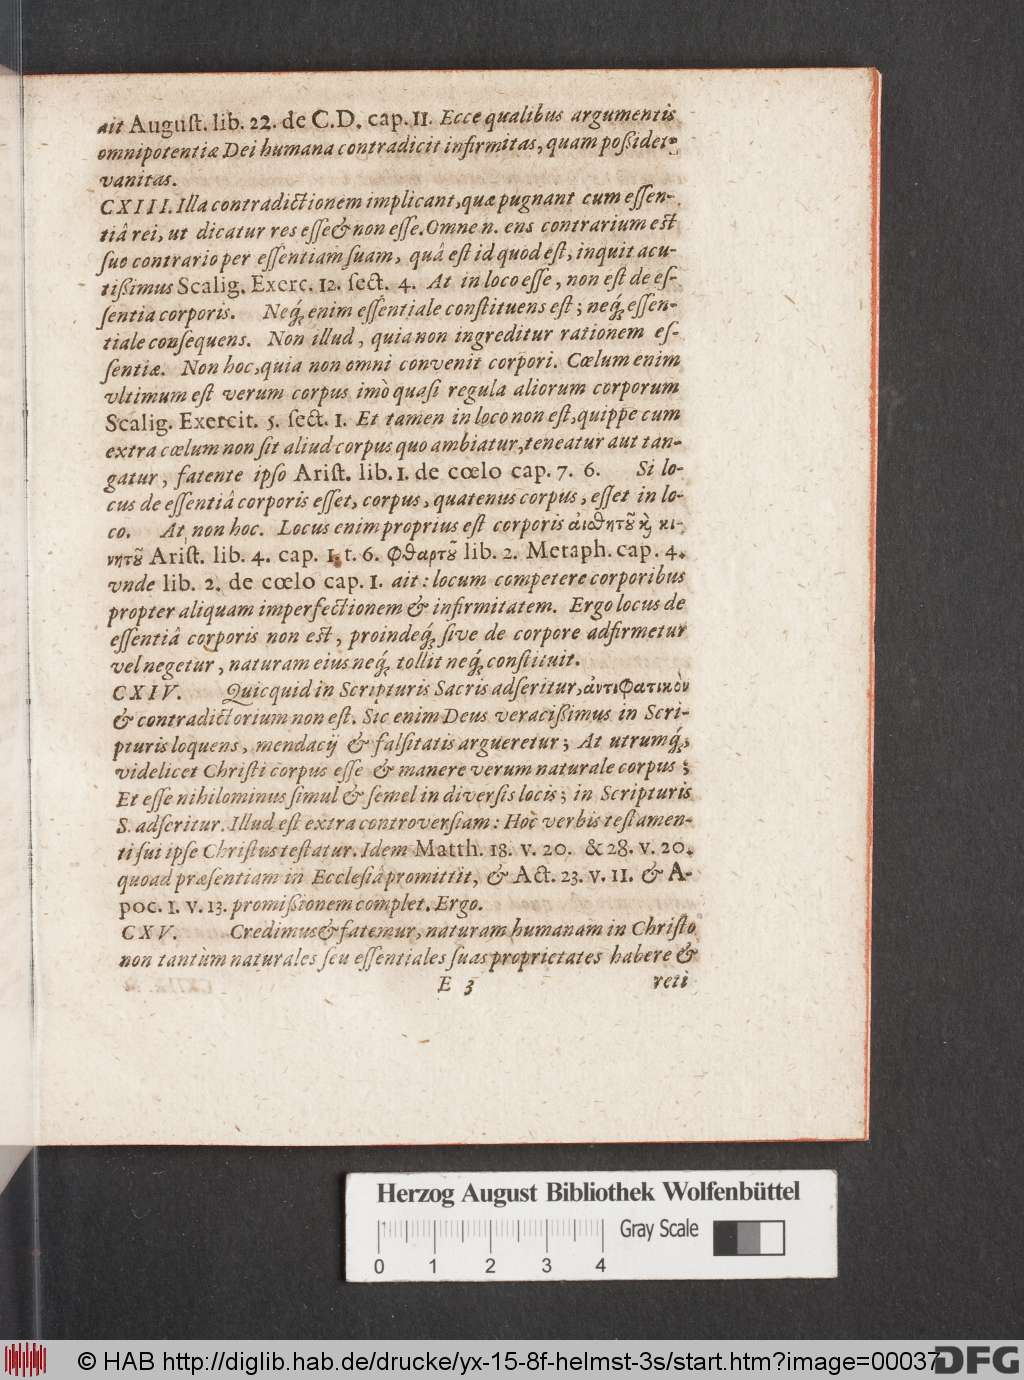 ait Auguſt. lib. 22. de C.D. cap. 11. Ecce qualibus argumentis
omnipotentiæ Dei humana contradicit infirmitas, quam poßidet
vanitas.
CXIII. Illa contradictionem implicant, quæ pugnant cum eſſen-
tiâ rei, ut dicatur res eſſe & non eſſe. Omne n. ens contrarium eſt
ſuo contrario per eſſentiam ſuam, quâ eſt id quod eſt, inquit acu-
tißimus Scalig. Exerc. 12. ſect. 4. At in loco eſſe, non eſt de eſ-
ſentia corporis. Neq; enim eſſentiale conſtituens eſt; neq; eſſen-
tiale conſequens. Non illud, quia non ingreditur rationem eſ-
ſentiæ. Non hoc, quia non omni convenit corpori. Cœlum enim
vltimum eſt verum corpus imò quaſi regula aliorum corporum
Scalig. Exercit. 5. ſect. 1. Et tamen in loco non eſt, quippe cum
extra cœlum non ſit aliud corpus quo ambiatur, teneatur aut tan-
gatur, fatente ipſo Ariſt. lib. 1. de cœlo cap. 7. 6. Si lo-
cus de eſſentiâ corporis eſſet, corpus, quatenus corpus, eſſet in lo-
co. At non hoc. Locus enim proprius eſt corporis αἰσθητοῦ καὶ κι-
νητοῦ Ariſt. lib. 4. cap. 1. t. 6. φθαρτοῦ lib. 2. Metaph. cap. 4.
vnde lib. 2. de cœlo cap. 1. ait: locum competere corporibus
propter aliquam imperfectionem & infirmitatem. Ergo locus de
eſſentiâ corporis non eſt, proindeq; ſive de corpore adfirmetur
vel negetur, naturam eius neq; tollit neq; conſtituit.
CXIV. Quicquid in Scripturis Sacris adſeritur, ἀντιφατικὸν
& contradictorium non eſt. Sic enim Deus veracißimus in Scri-
pturis loquens, mendacij & falſitatis argueretur; At utrumq;,
videlicet Chriſti corpus eſſe & manere verum naturale corpus;
Et eſſe nihilominus ſimul & ſemel in diverſis locis; in Scripturis
S. adſeritur. Illud eſt extra controverſiam: Hoc verbis teſtamen-
ti ſui ipſe Chriſtus teſtatur. Idem Matth. 18. v. 20. & 28. v. 20.
quoad præſentiam in Eccleſiâ promittit, & Act. 23. v. 11. & A-
poc. 1. v. 13. promißionem complet. Ergo.
CXV. Credimus & fatemur, naturam humanam in Chriſto
non tantùm naturales ſeu eſſentiales ſuas proprietates habere &
E 3 reti
Herzog August Bibliothek Wolfenbüttel
Gray Scale
0 1 2 3 4
© HAB http://diglib.hab.de/drucke/yx-15-8f-helmst-3s/start.htm?image=00037
DFG